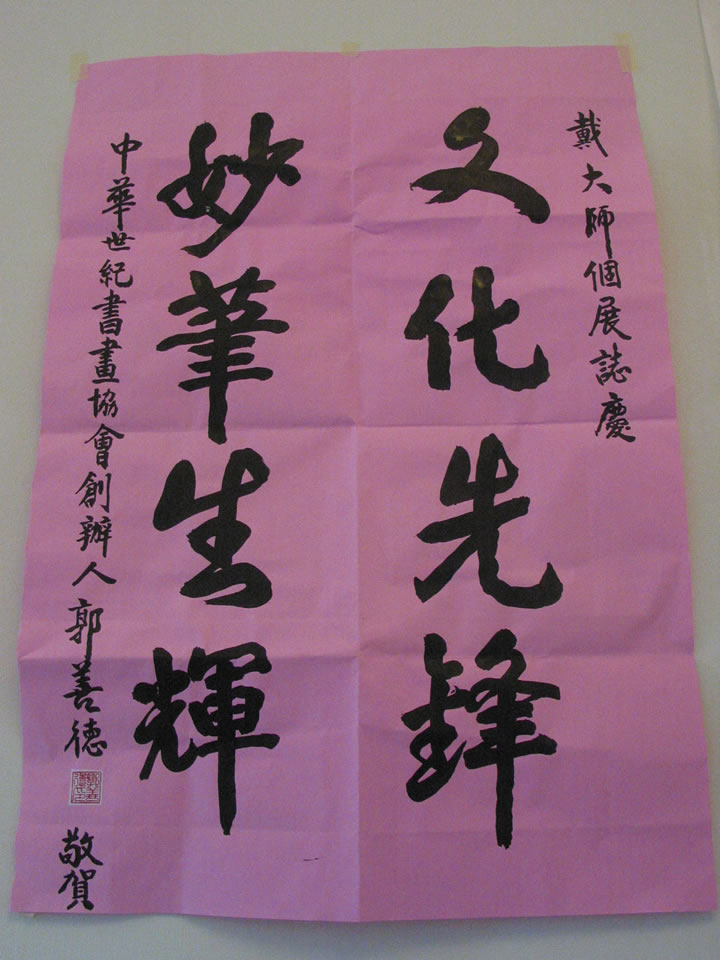 戴大師個展誌慶
文化先鋒
妙筆生輝
中華世紀書畫協會創辦人郭善德
敬賀